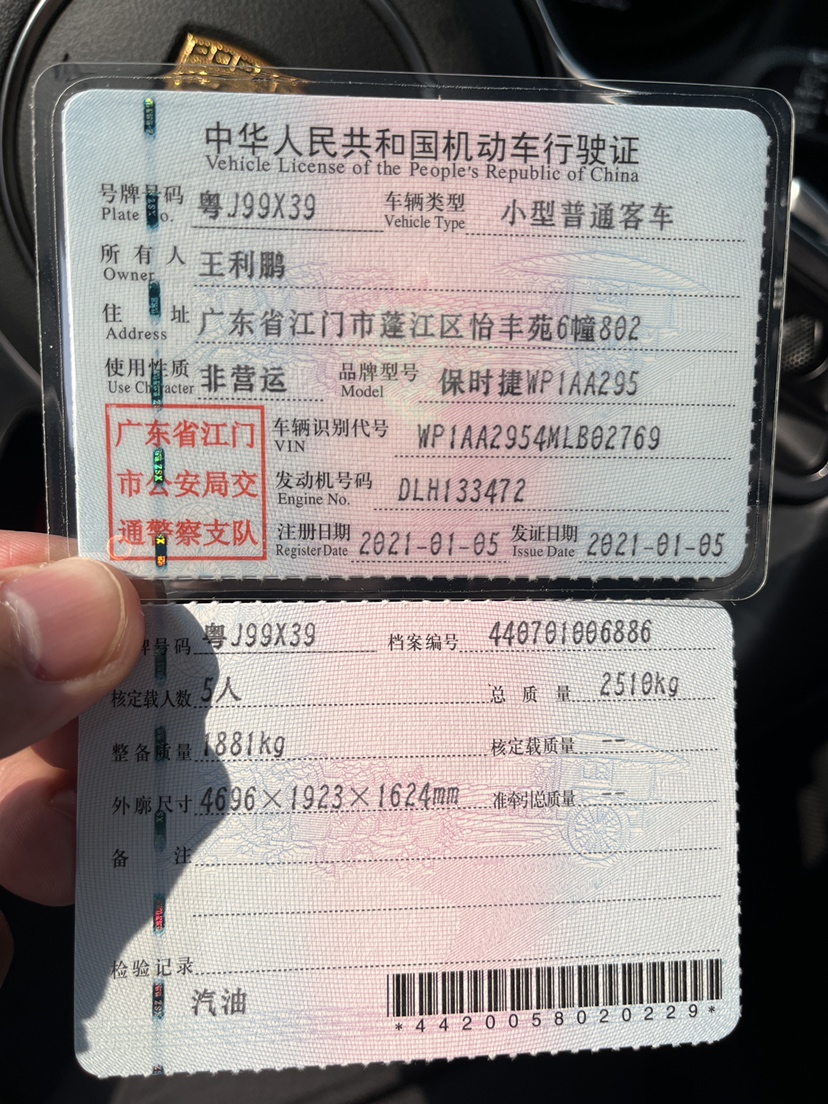 中华人民共和国机动车行驶证
Vehicle License of the People's Republic of China
号牌号码 粤J99X39 车辆类型 小型普通客车
Plate No. Vehicle Type
所有人 王利鹏
Owner
住址 广东省江门市蓬江区怡丰苑6幢802
Address
使用性质 非营运 品牌型号 保时捷WP1AA295
Use Character Model
广东省江门
市公安局交
通警察支队
车辆识别代号 WP1AA2954MLB02769
VIN
发动机号码 DLH133472
Engine No.
注册日期 2021-01-05 发证日期 2021-01-05
Register Date Issue Date
牌号码 粤J99X39 档案编号 440701006886
核定载人数 5人 总质量 2510kg
整备质量 1881kg 核定载质量 --
外廓尺寸 4696×1923×1624mm 准牵引总质量 --
备注
检验记录
汽油
*4420058020229*